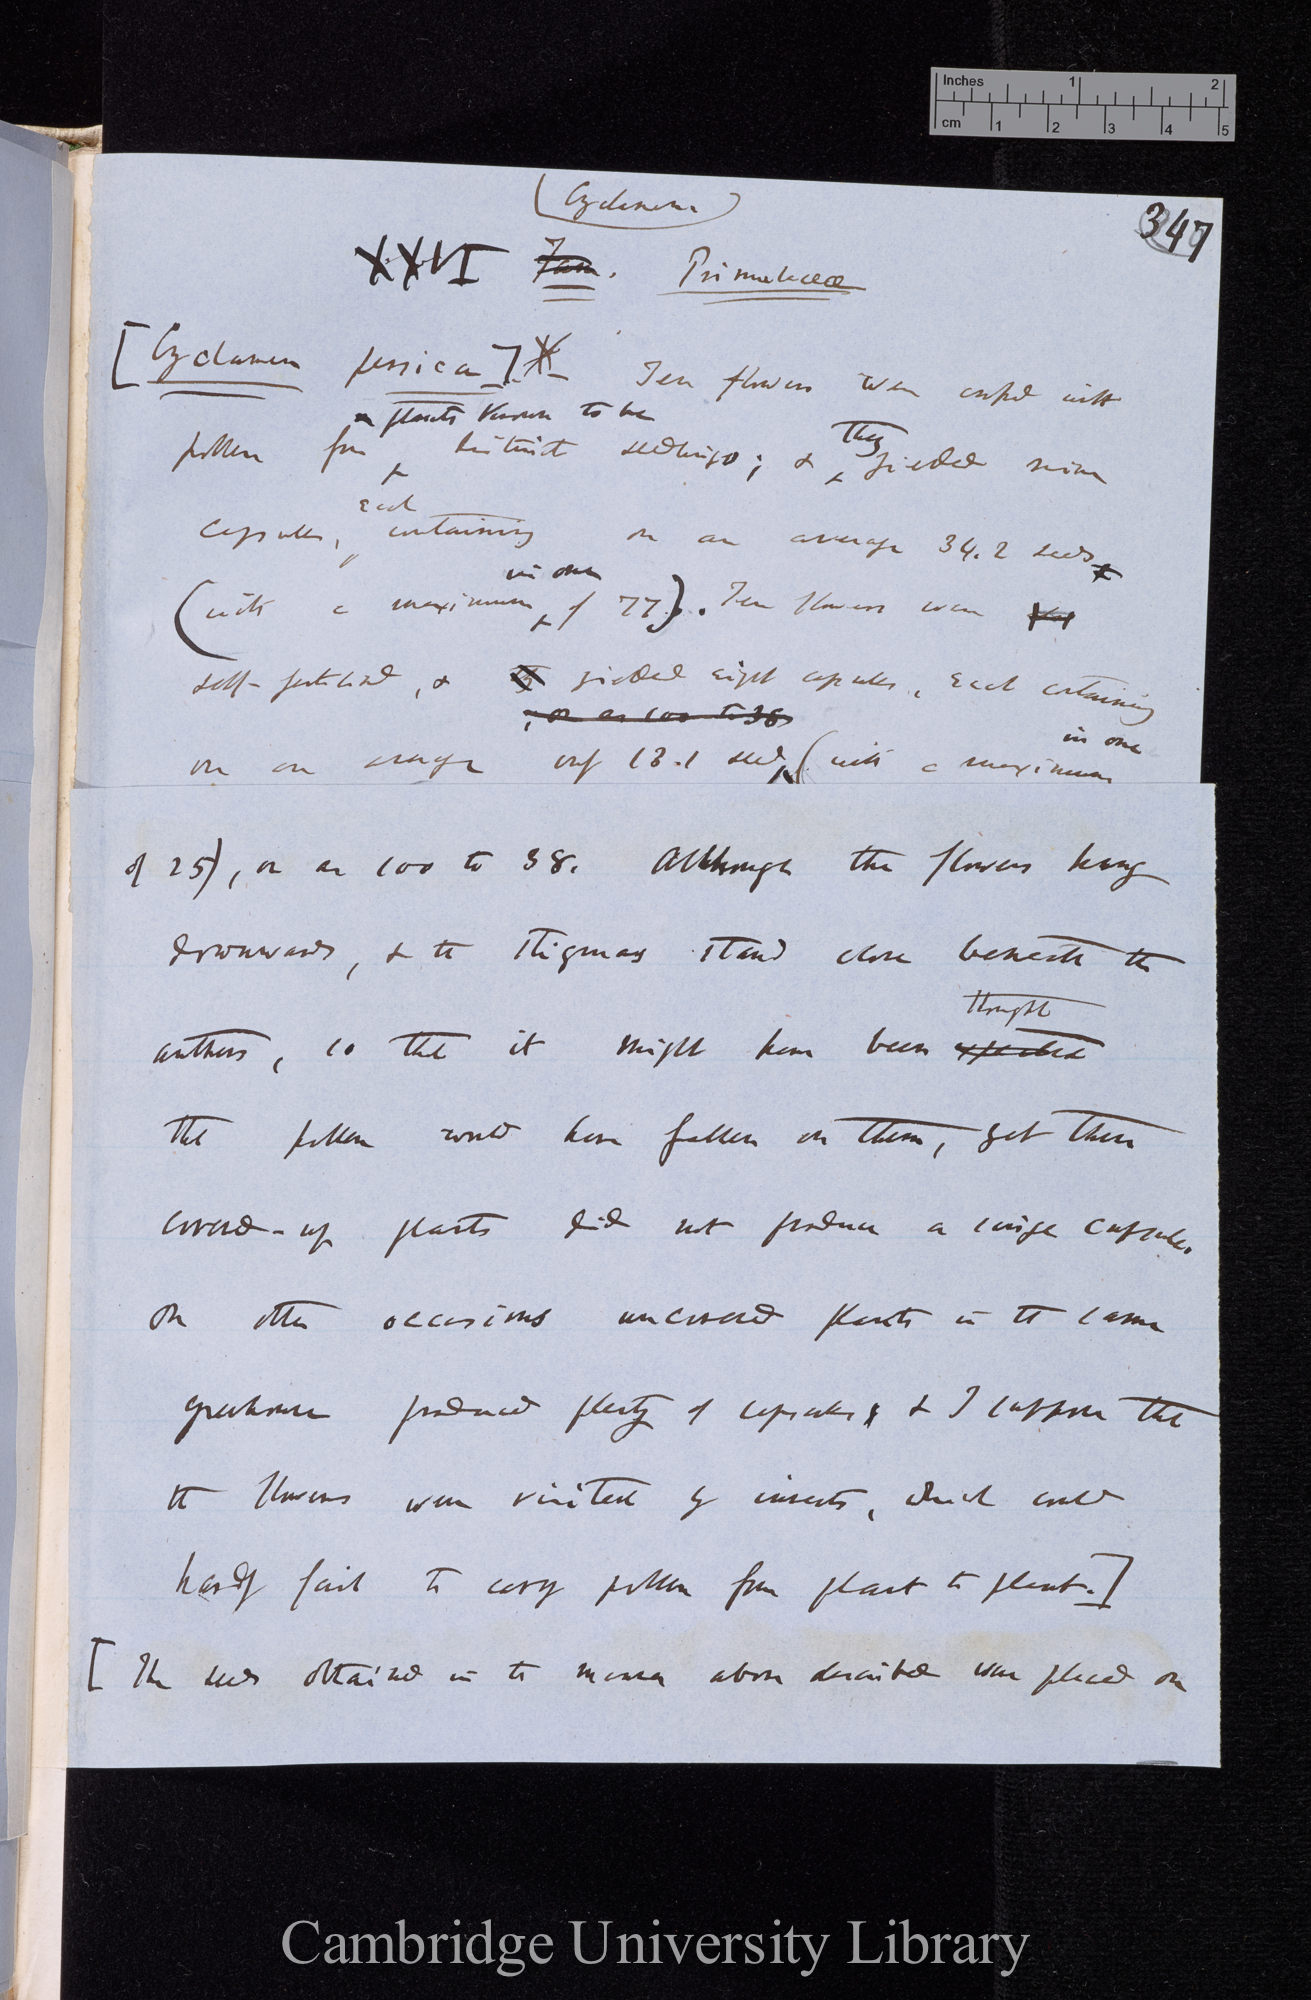 Inches 1 2
cm 1 2 3 4 5
(Cyclamen)
347
XXVI Fam. Primulaceæ
[Cyclamen persicum].X— Ten flowers were crossed with
plants known to be
pollen from distinct seedlings; & they yielded nine
each
capsules, containing on an average 34.2 seeds
in one
(with a maximum of 77). Ten flowers were
self-fertilised, & they yielded eight capsules, each containing
, or as 100 to 38
in one
on an average only 13.1 seeds (with a maximum
of 25), or as 100 to 38. Although the flowers hang
downwards, & the stigmas stand close beneath the
thought
anthers, so that it might have been expected
that pollen would have fallen on them, yet these
covered-up plants did not produce a single capsule.
On other occasions uncovered plants in the same
greenhouse produced plenty of capsules, & I suppose that
the flowers were visited by insects, which could
hardly fail to carry pollen from plant to plant.]
[The seeds obtained in the manner above described were placed on
Cambridge University Library